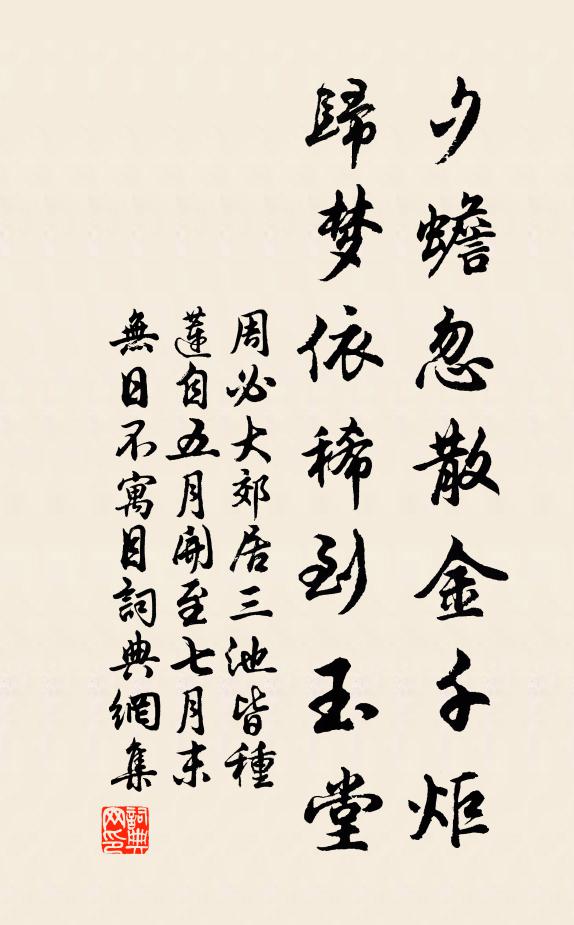 夕蟾忽散金千炬
歸梦依稀到玉堂
周必大郊居三池皆種
蓮自五月開至七月末
無日不寓目詞典網集
詞典网印